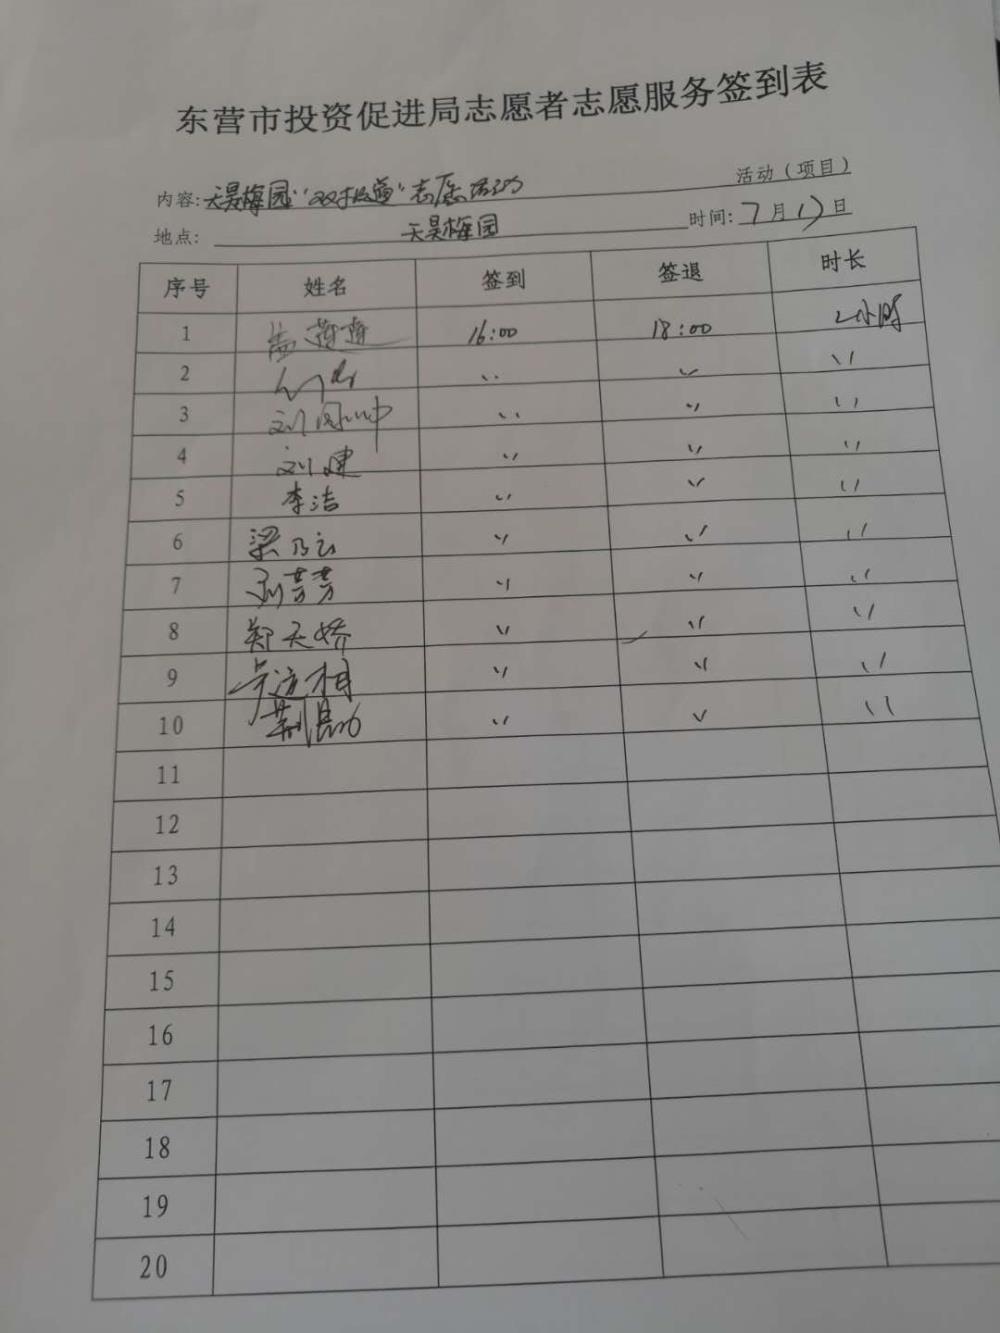 东营市投资促进局志愿者志愿服务签到表
内容:天昊梅园"双报道"志愿活动 活动（项目）
地点: 天昊梅园 时间: 7月17日
序号 姓名 签到 签退 时长
1 孟莲莲 16:00 18:00 2小时
2 〃 〃 〃
3 刘 〃 〃 〃
4 刘建 〃 〃 〃
5 李洁 〃 〃 〃
6 梁乃云 〃 〃 〃
7 孙芳芳 〃 〃 〃
8 郑天娇 〃 〃 〃
9 〃 〃 〃
10 荆 〃 〃 〃
11
12
13
14
15
16
17
18
19
20